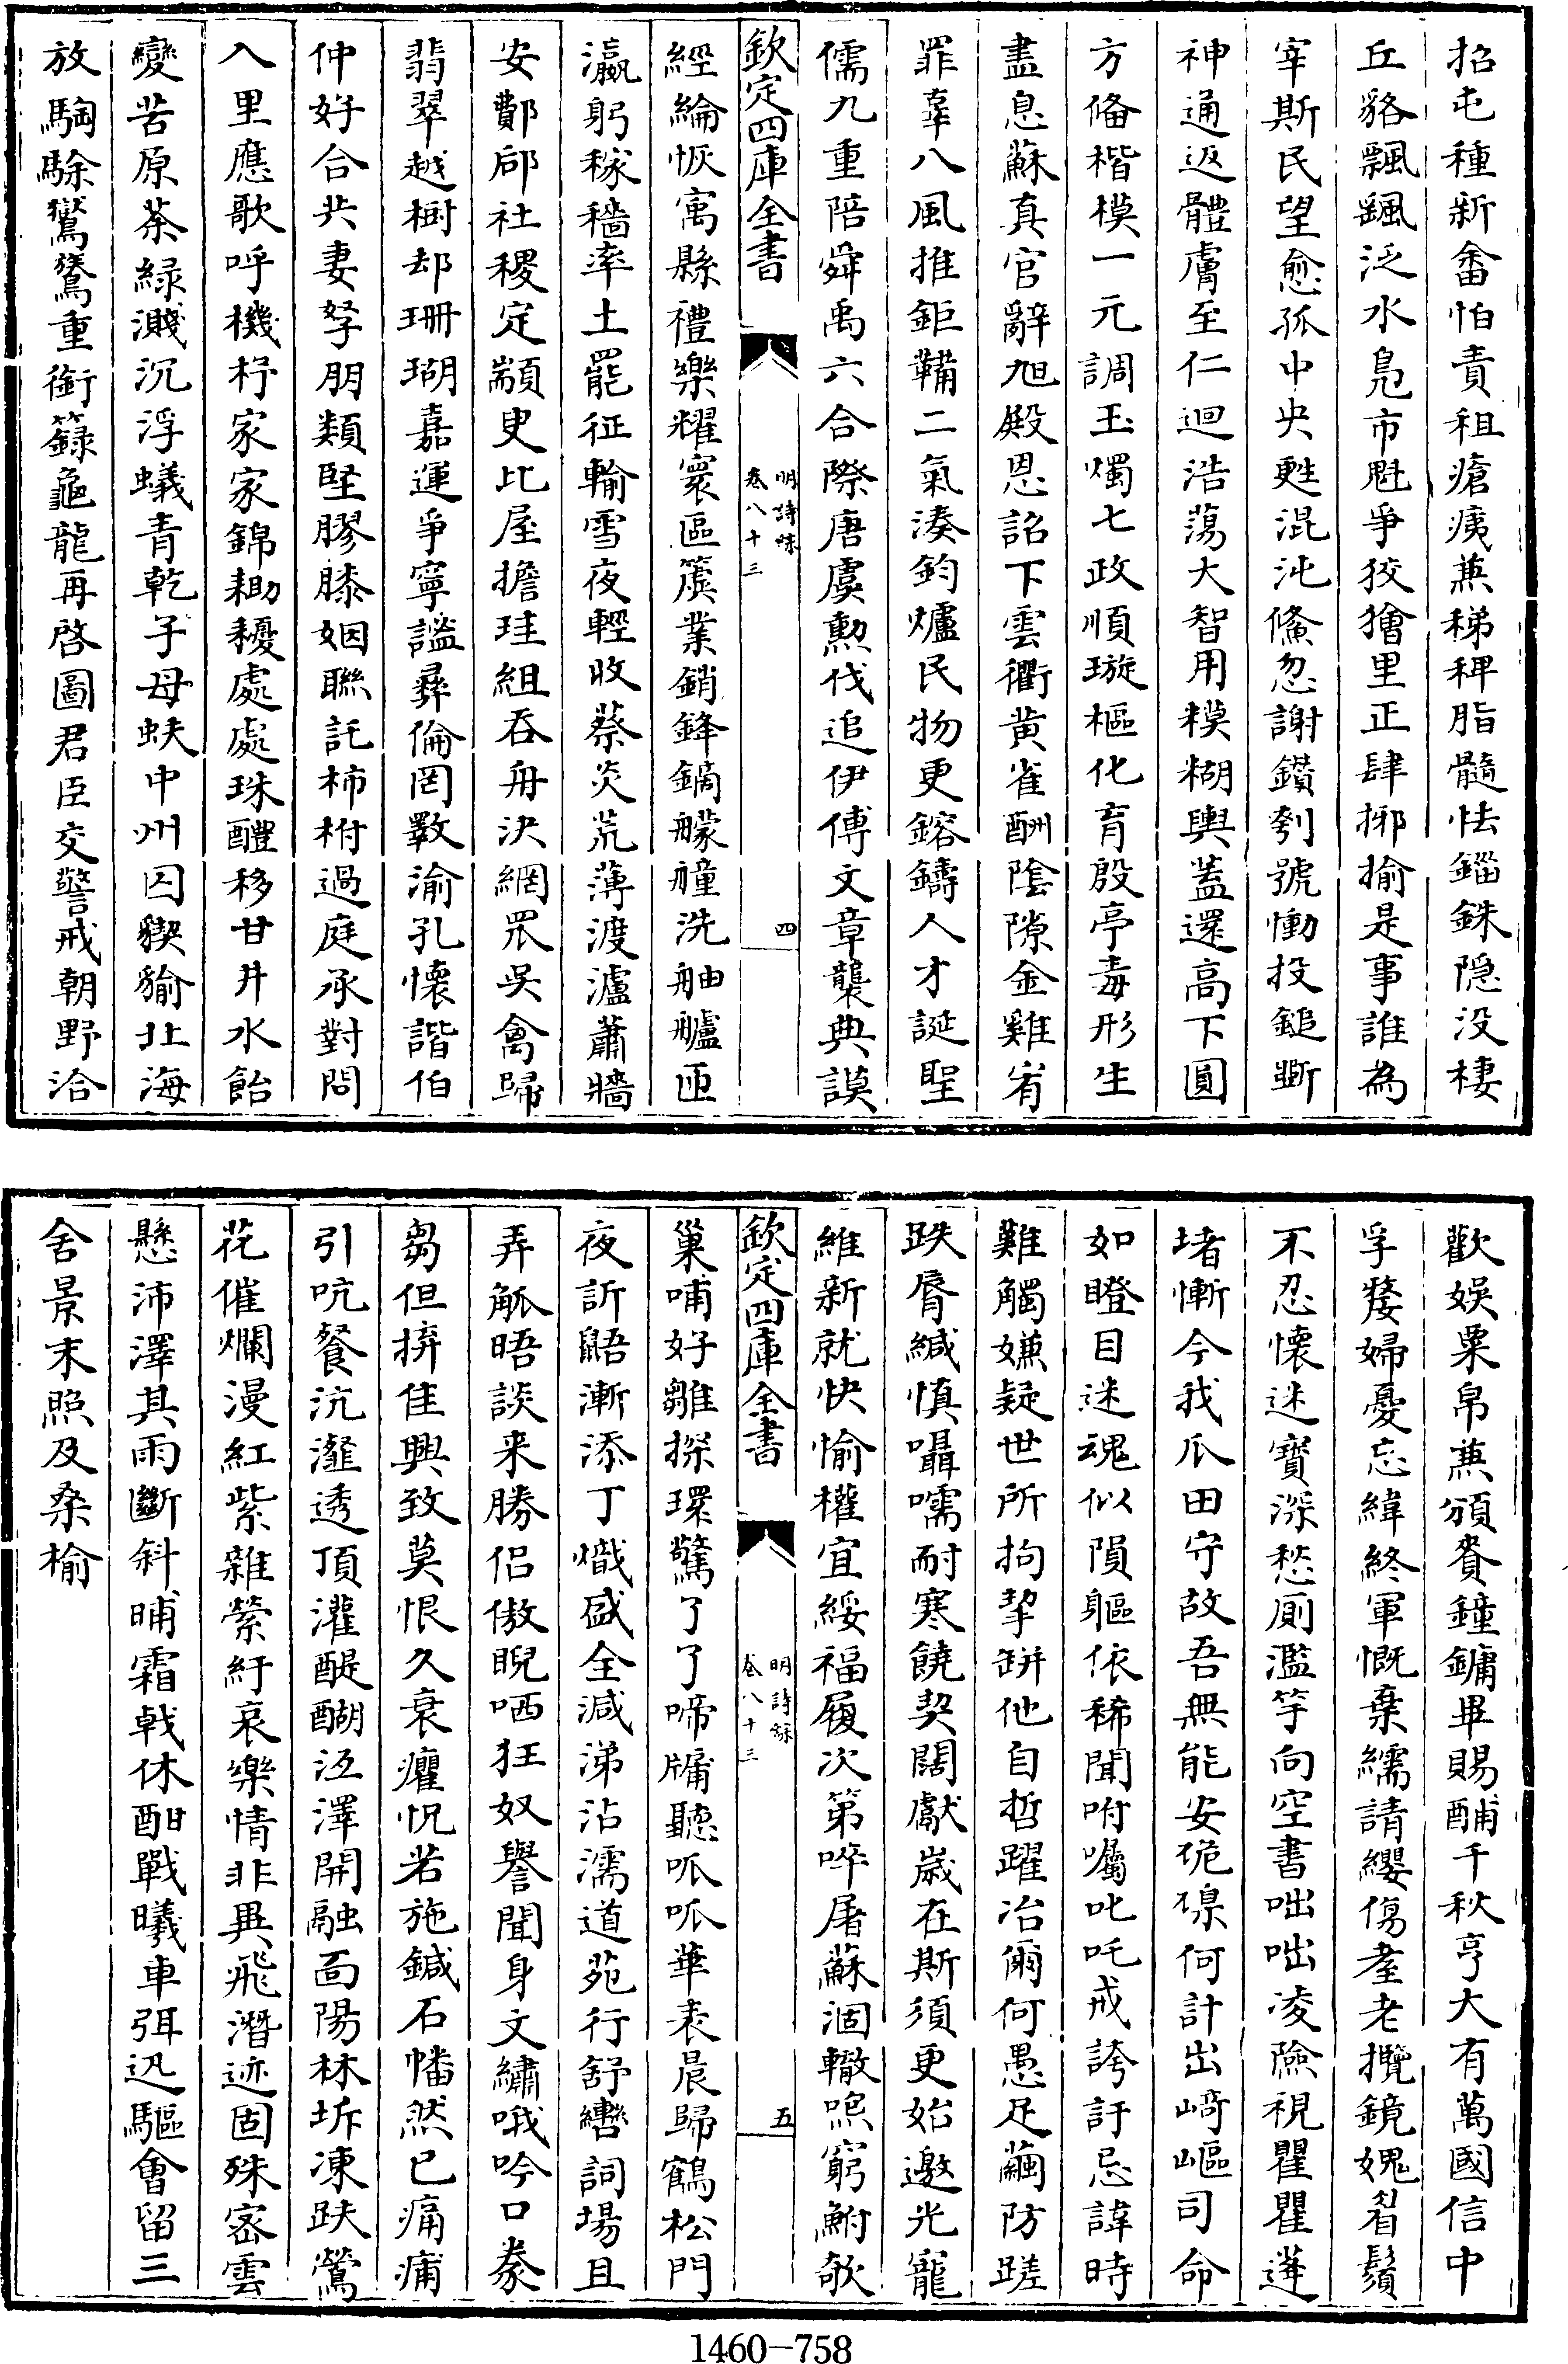 招屯種新畬怕責租瘡痍蕪稊稗脂髓怯錙銖隐没棲
丘貉飄颻泛水鳬市魁爭狡獪里正肆揶揄是事誰為
宰斯民望愈孤中央甦混沌儵忽謝鑚刳號慟投鎚斲
神通返體膚至仁迴浩蕩大智用糢糊輿葢還高下圓
方偹楷模一元調玉燭七政順璇樞化育殷亭毒形生
盡息蘇真官辭旭殿恩詔下雲衢黄雀酬隂隙金雞宥
罪辜八風推鉅鞴二氣湊鈞爐民物更鎔鑄人才誕聖
儒九重陪舜禹六合際唐虞勲伐追伊傅文章襲典謨
欽定四庫全書
明詩綜
卷八十三
四
經綸恢寓縣禮樂耀寰區簴業銷鋒鏑艨艟洗舳艫匝
瀛躬稼穡率土罷征輸雪夜輕收蔡炎荒薄渡瀘蕭牆
安鄪郈社稷定顓臾比屋擔珪組吞舟决網罛吳禽歸
翡翠越樹却珊瑚嘉運爭寧謐彛倫罔斁渝孔懷諧伯
仲好合共妻孥朋類堅膠膝姻聯託柿柎過庭承對問
入里應歌呼機杼家家錦耡耰處處珠醴移甘井水飴
變苦原荼綠濺沉浮蟻青乾子母蚨中州囚猰貐北海
放騊駼鸑鷟重銜籙龜龍再啓圖君臣交警戒朝野洽
歡娱粟帛蕪頒賚鐘鏞畢賜酺千秋亨大有萬國信中
孚嫠婦憂忘緯終軍慨棄繻請纓傷耋老攬鏡媿眉鬚
不忍懷迷寳深愁厠濫竽向空書咄咄凌險視瞿瞿蓮
堵慚今我瓜田守故吾無能安臲𡰈何計出崎嶇司命
如瞪目迷魂似隕軀依稀聞咐囑叱吒戒誇訏忌諱時
難觸嫌疑世所拘挈缾他自哲躍冶爾何愚足繭防蹉
跌脣緘慎囁嚅耐寒饒契闊獻嵗在斯須更始邀光寵
維新就快愉權宜綏福履次第啐屠蘇涸轍喣窮鮒欹
欽定四庫全書
明詩綜
卷八十三
五
巢哺好雛探環驚了了啼牖聽呱呱華表晨歸鶴松門
夜訢鼯漸添丁熾盛全減涕沾濡道苑行舒轡詞場且
弄觚晤談来勝侣傲睨哂狂奴譽聞身文繡哦吟口豢
芻但拚佳興致莫恨久衰癯怳若施鍼石幡然已痌痡
引吭餐沆瀣透頂灌醍醐沍澤開融面陽林坼凍趺鶯
花催爛漫紅紫雜縈紆哀樂情非異飛潛迹固殊密雲
懸沛澤其雨斷斜晡霜㦸休酣戰曦車弭迅驅會留三
舍景末照及桑榆
1460-758